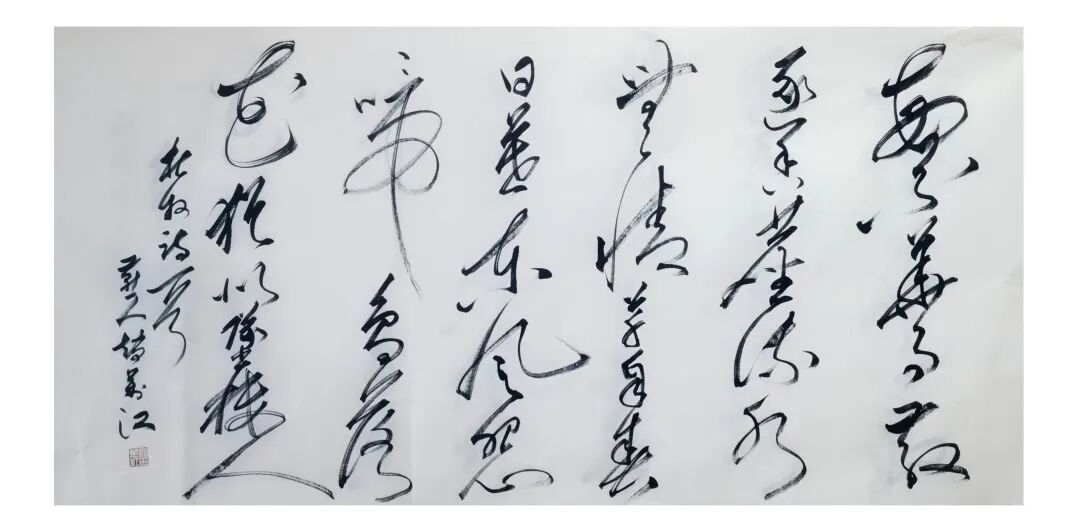 繁華事散
逐香塵流水
無情草自春
日暮東風怨
啼鳥落
花猶似墜樓人
杜牧詩一首
人趙江